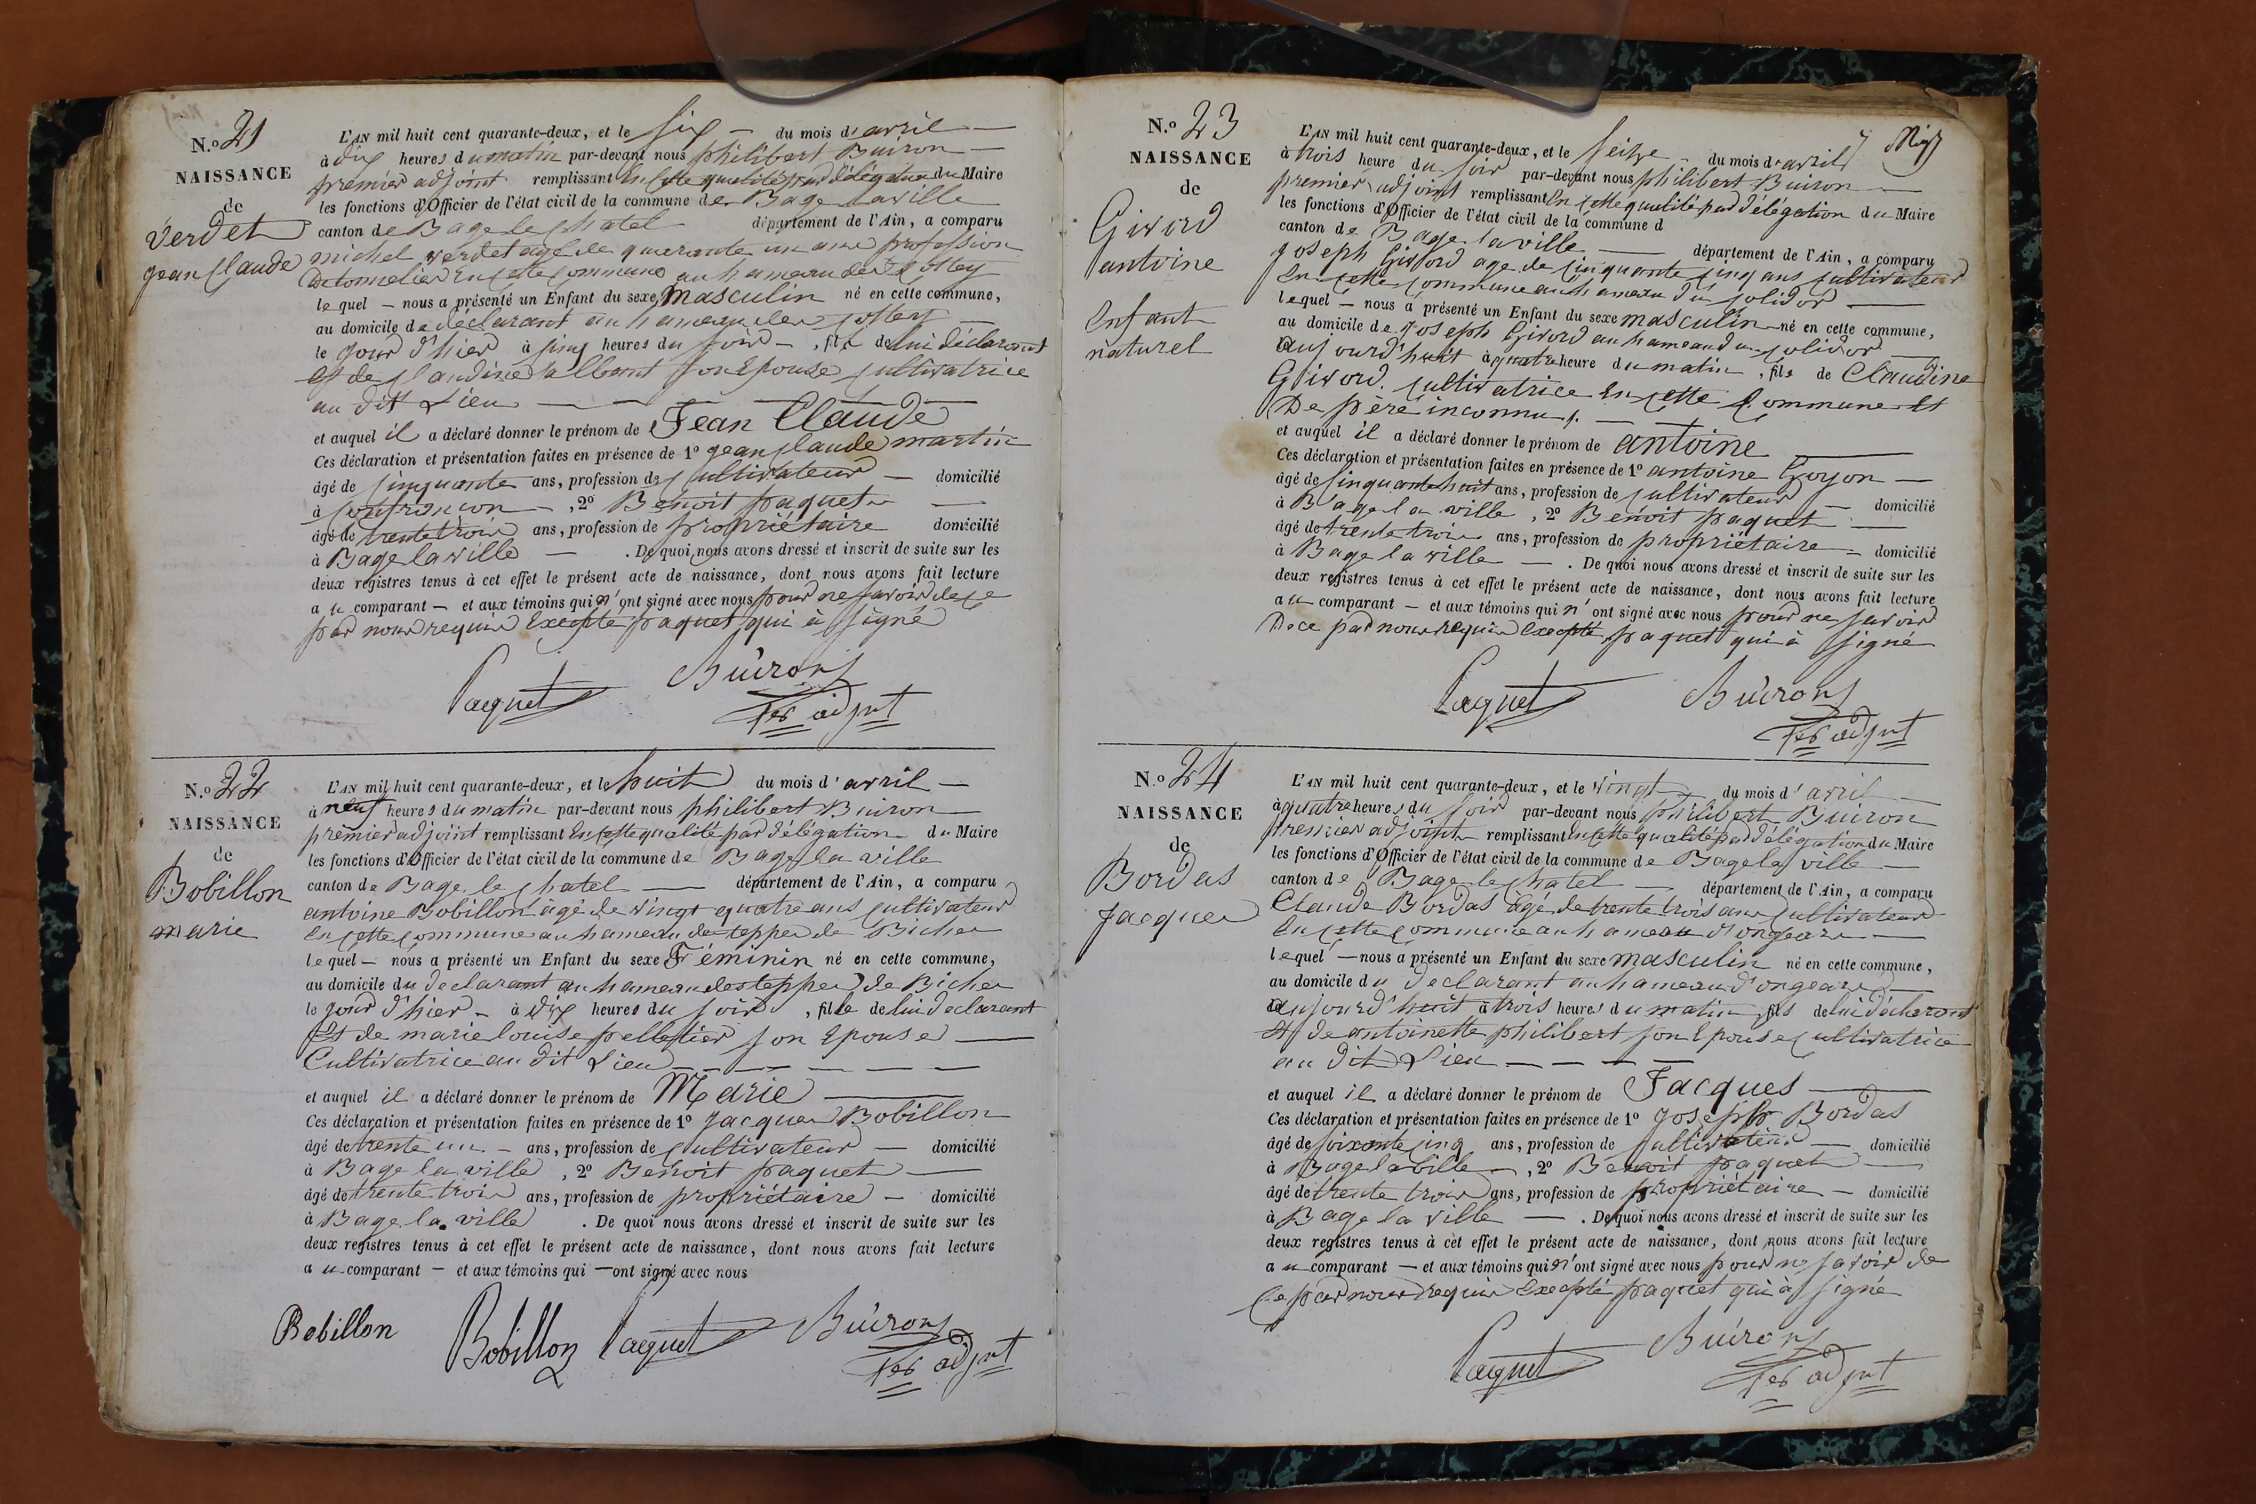 N.o 21
NAISSANCE
de
Verdet
jean Claude
L'AN mil huit cent quarante-deux, et le six - du mois d'avril
à dix heures du matin par-devant nous philibert Buiron
premier adjoint remplissant en cette qualité par délégation du Maire
les fonctions d'Officier de l'état civil de la commune de Bage laville
canton de Bage le chatel département de l'Ain, a comparu
michel verdet agé de quarante un ans profession
De tonnelier en cette commune au hameau des
le quel - nous a présenté un Enfant du sexe masculin né en cette commune,
au domicile de déclarant au hameau des
le jour d'hier à cinq heures du soir - , fils de lui déclarant
et de claudine alban son Epouse cultivatrice
au dit Lieu
et auquel il a déclaré donner le prénom de Jean Claude
Ces déclaration et présentation faites en présence de 1o jean claude martin
âgé de cinquante ans, profession de cultivateur - domicilié
à , 2o Benoit paquet
âgé de trente trois ans, profession de propriétaire domicilié
à Bage laville - . De quoi nous avons dressé et inscrit de suite sur les
deux registres tenus à cet effet le présent acte de naissance, dont nous avons fait lecture
au comparant - et aux témoins qui n'ont signé avec nous pour ne savoir de ce
par nous requis Excepté paquet qui à signé
Paquet Buiron
1er adjnt
N.o 22
NAISSANCE
de
Bobillon
marie
L'AN mil huit cent quarante-deux, et le huit du mois d'avril -
à neuf heures du matin par-devant nous philibert Buiron
premier adjoint remplissant en cette qualité par délégation du Maire
les fonctions d'Officier de l'état civil de la commune de Bage la ville
canton de Bage le chatel département de l'Ain, a comparu
antoine Bobillon âgé de vingt quatre ans cultivateur
en cette commune au hameau des teppes de Biches
le quel - nous a présenté un Enfant du sexe Féminin né en cette commune,
au domicile du declarant au hameau des teppes de Biches
le jour d'hier - à dix heures du soir , fille de lui declarant
Et de marie louise pelletier son Epouse
Cultivatrice au dit Lieu
et auquel il a déclaré donner le prénom de Marie
Ces déclaration et présentation faites en présence de 1o jacques Bobillon
âgé de trente un - ans, profession de cultivateur - domicilié
à Bage la ville , 2o Benoit paquet
âgé de trente trois ans, profession de propriétaire - domicilié
à Bage la ville . De quoi nous avons dressé et inscrit de suite sur les
deux registres tenus à cet effet le présent acte de naissance, dont nous avons fait lecture
au comparant - et aux témoins qui - ont signé avec nous
Bobillon Bobillon Paquet Buiron
1er adjnt
N.o 23
NAISSANCE
de
Givord
antoine
Enfant
naturel
L'AN mil huit cent quarante-deux, et le seize - du mois d'avril 7
à trois heure du soir par-devant nous philibert Buiron
premier adjoint remplissant en cette qualité par délégation du Maire
les fonctions d'Officier de l'état civil de la commune d
canton de Bage la ville département de l'Ain, a comparu
joseph Givord age de cinquante cinq ans cultivateur
en cette commune au hameau du
lequel - nous a présenté un Enfant du sexe masculin né en cette commune,
au domicile de joseph Givord au hameau du
aujourd'huit à quatre heure du matin , fils de Claudine
Givord. cultivatrice en cette Commune Et
De père inconnu
et auquel il a déclaré donner le prénom de antoine
Ces déclaration et présentation faites en présence de 1o antoine Goyon
âgé de cinquante huit ans, profession de cultivateur - domicilié
à Bage la ville , 2o Benoit paquet
âgé de trente trois ans, profession de propriétaire - domicilié
à Bage la ville - . De quoi nous avons dressé et inscrit de suite sur les
deux registres tenus à cet effet le présent acte de naissance, dont nous avons fait lecture
au comparant - et aux témoins qui n'ont signé avec nous pour ne savoir
De ce par nous requis Excepté paquet qui à signé
Paquet Buiron
1er adjnt
N.o 24
NAISSANCE
de
Bordas
jacques
L'AN mil huit cent quarante-deux, et le vingt du mois d'avril
à quatre heures du soir par-devant nous philibert Buiron
premier adjoint remplissant en cette qualité par délégation du Maire
les fonctions d'Officier de l'état civil de la commune de Bage la ville
canton de Bage le chatel département de l'Ain, a comparu
Claude Bordas âgé de trente trois ans cultivateur
en cette commune au hameau d'ongeare
lequel - nous a présenté un Enfant du sexe masculin né en cette commune,
au domicile du declarant au hameau d'ongeare
aujourd'huit à trois heures du matin , fils de lui déclarant
Et de antoinette philibert son Epouse cultivatrice
au dit Lieu
et auquel il a déclaré donner le prénom de Jacques
Ces déclaration et présentation faites en présence de 1o joseph Bordas
âgé de soixante cinq ans, profession de cultivateur - domicilié
à Bage la ville , 2o Benoit paquet
âgé de trente trois ans, profession de propriétaire - domicilié
à Bage la ville - . De quoi nous avons dressé et inscrit de suite sur les
deux registres tenus à cet effet le présent acte de naissance, dont nous avons fait lecture
au comparant - et aux témoins qui n'ont signé avec nous pour ne savoir de
Ce par nous requis Excepté paquet qui à signé
Paquet Buiron
1er adjnt